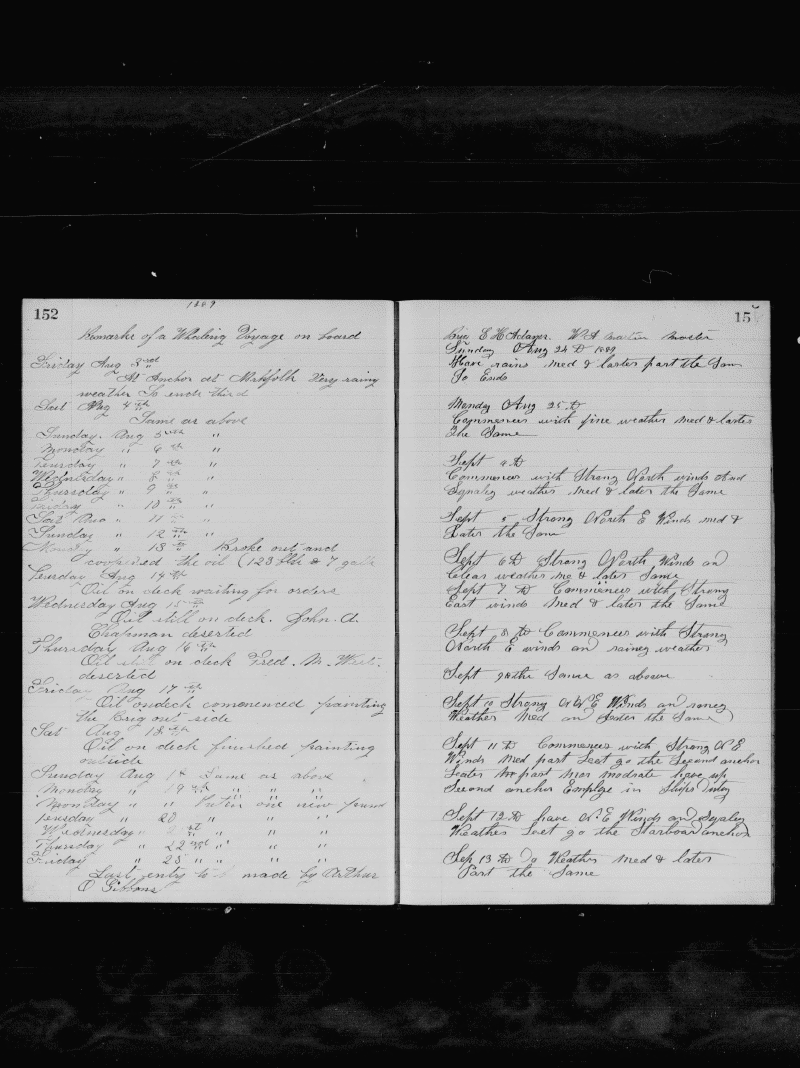 152
1889
Remarks of a Whaling Voyage on board
Friday Aug 3rd
At Anchor at Very rainy
weather So ends third
Sat Aug 4th
Same as above
Sunday. Aug 5th "
Monday " 6th "
Tuesday " 7th "
Wednesday " 8th "
Thursday " 9th "
Friday " 10th "
Sat Aug " 11th "
Sunday " 12th "
Monday " 13th Broke out and
coopered the oil (123 bbls & 7 galls
Tuesday Aug 14th
Oil on deck waiting for orders
Wednesday Aug 15th
Oil still on deck. John A.
Chapman deserted
Thursday Aug 16th
Oil still on deck Fred. M. West.
deserted
Friday Aug 17th
Oil ondeck comenced painting
the Brig out side
Sat Aug 18th
Oil on deck finished painting
outside
Sunday Aug 18 Same as above
Monday " 19th " " "
Monday " " one new
Tuesday " 20 " " "
Wednesday " st " " "
Thursday " 22nd " " "
Friday " 23 " " " "
Last entry made by Arthur
O Gibbons
15
Brig E H Adams. W A Martin Master
Sunday Aug 24th 1889
Have rains Med & later part the Sam
So Ends
Monday Aug 25th
Commences with fine weather Med & later
the Same
Sept 4th
Commences with Strong North winds And
Squaley weather Med & later the Same
Sept 5 Strong North E Winds Med &
Later the Sam
Sept 6th Strong North Winds an
Clear weather Me & later Same
Sept 7th Commences with Strong
East winds Med & later the Same
Sept 8th Commences with Strong
North E winds an rainey weather
Sept 9 the Same as above
Sept 10 Strong N E Winds an raney
Weather Med an Later the Same
Sept 11th Commences with Strong N E
Winds Med part Leet go the Second anchor
Later part mor modrate have up
Second anchor Emploe in Ships duty
Sept 12th have N E Winds an Sqaley
Weather Leet go the Starboar anchor
Sep 13th Weather Med & later
Part the Same